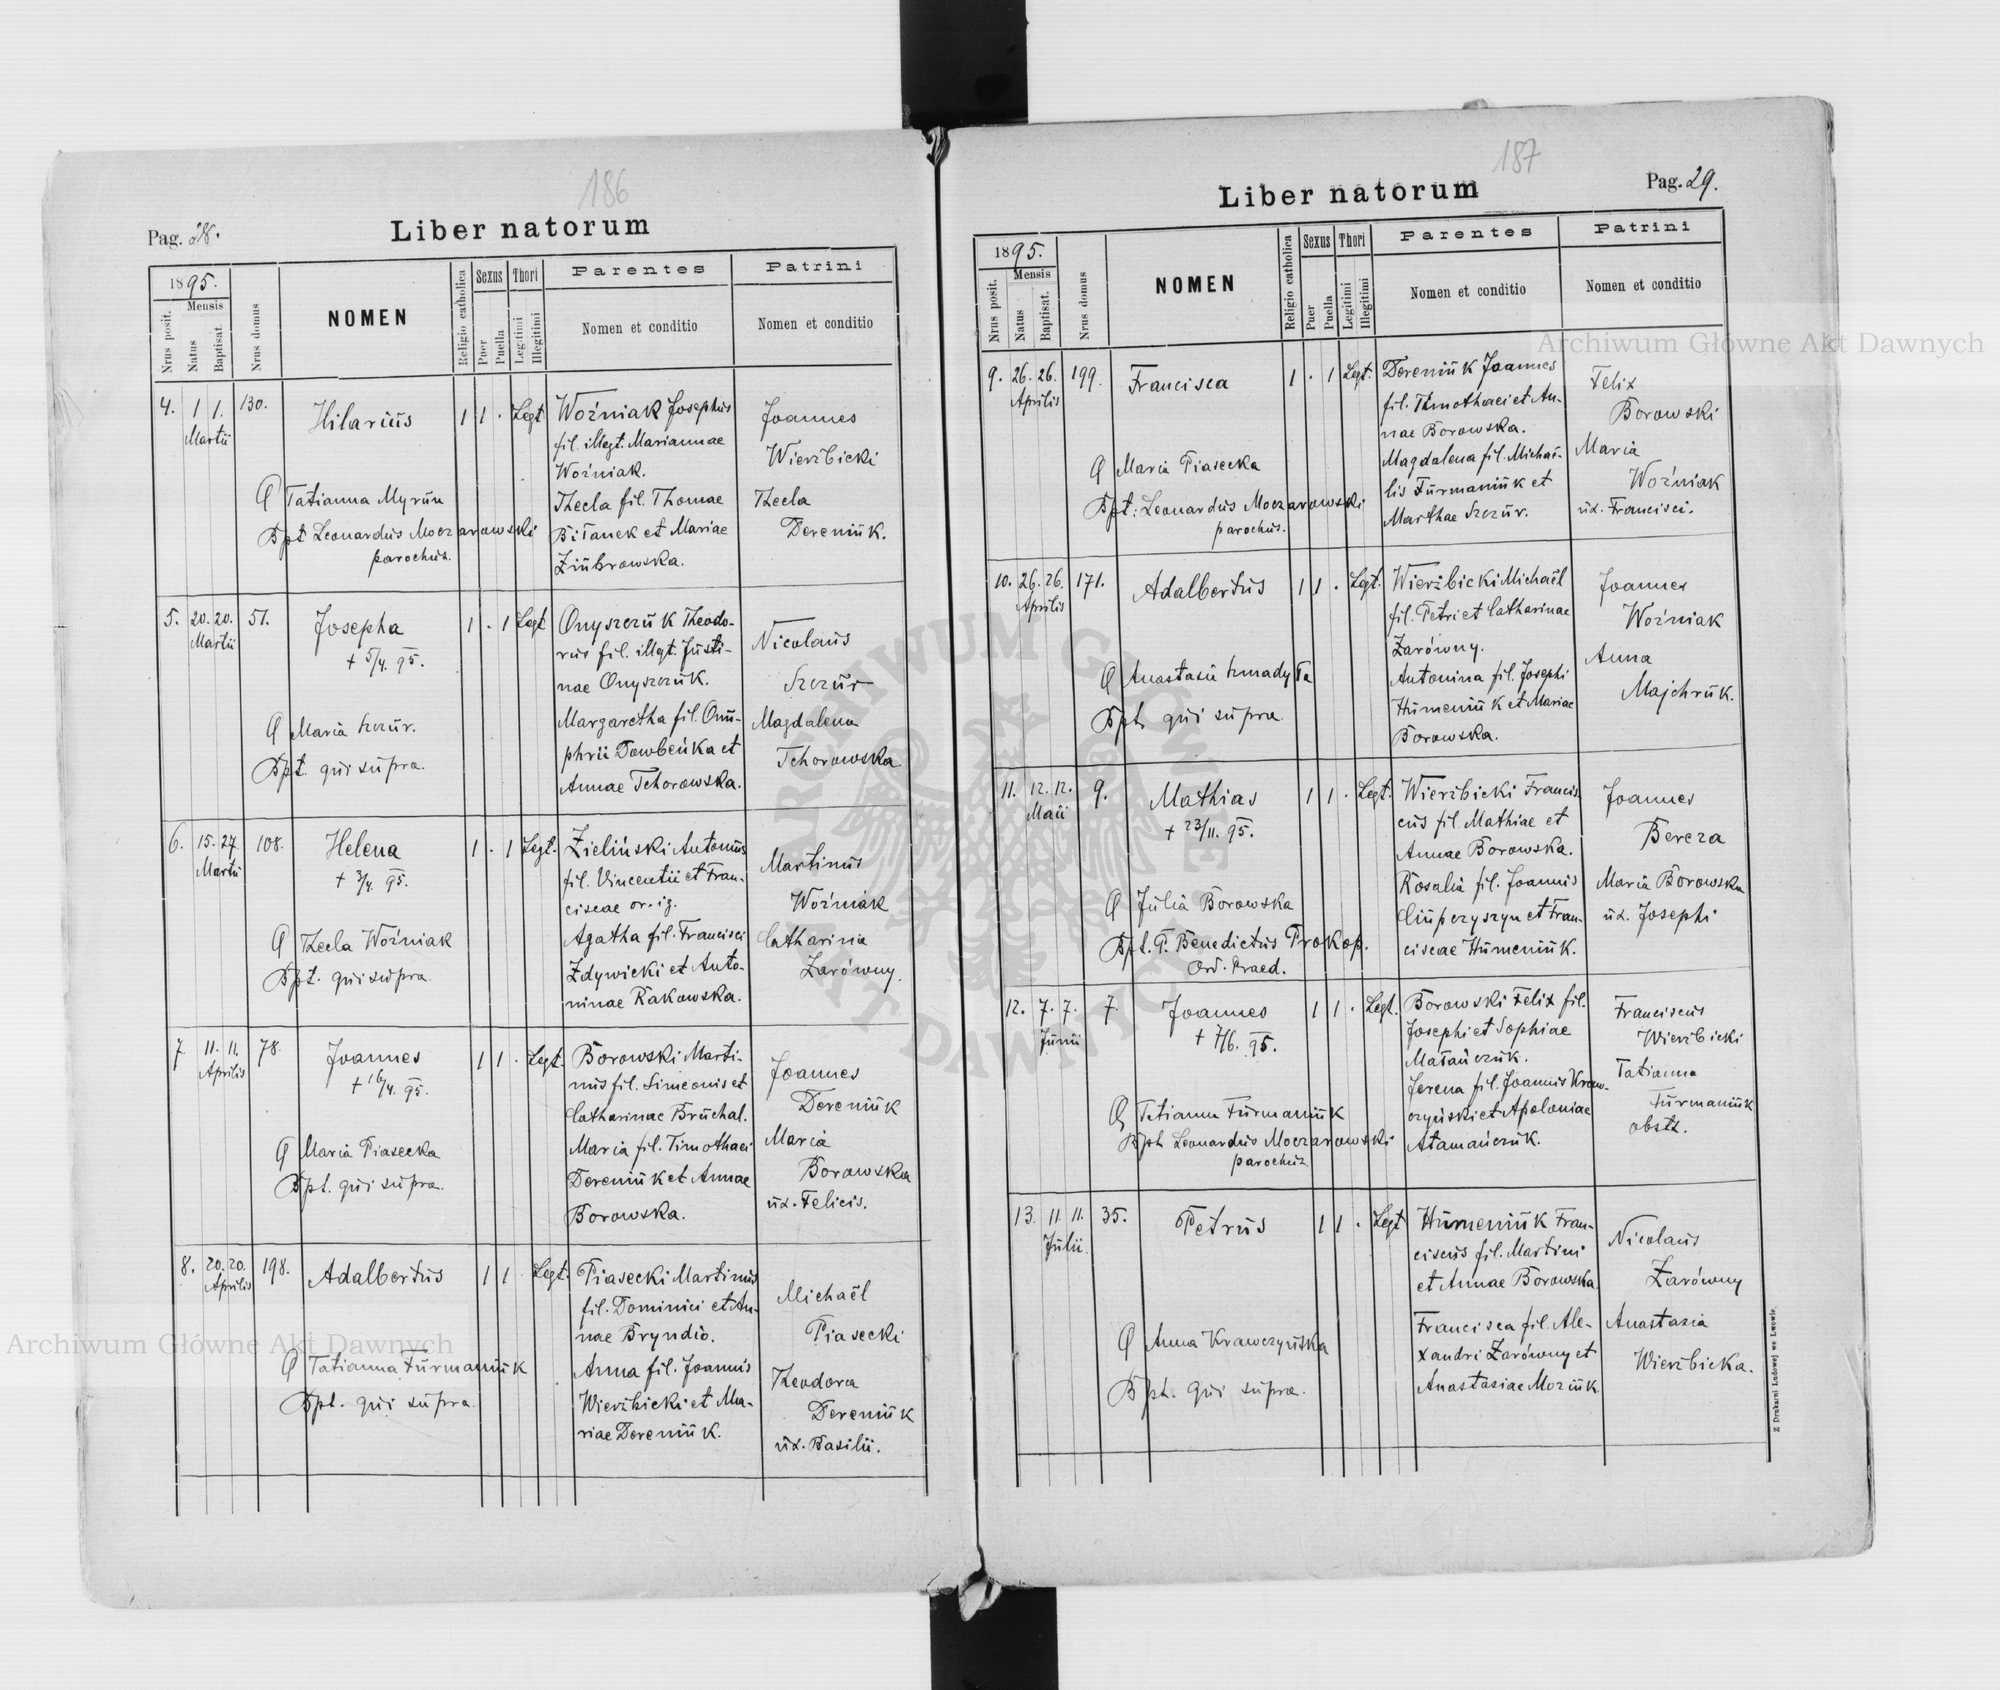 186
Pag. 28.
Liber natorum
1895.
Mensis
Nrus posit.
Natus
Baptisat.
Nrus domus
NOMEN
Religio catholica
Sexus
Puer
Puella
Thori
Legitimi
Illegitimi
Parentes
Nomen et conditio
Patrini
Nomen et conditio
4. 1 1. 130. Hilarius 1 1 . Legt. Woźniak Josephus Joannes
Martii
fil. illegt. Mariannae Wierzbicki
Woźniak.
Tatianna Myrun Thecla fil. Thomae Thecla
Bpt. Leonardus Moczarowski Biłanek et Mariae Dereniuk.
parochus. Ziubrowska.
5. 20. 20. 51. Josepha 1 . 1 Legt. Onyszczuk Theodo-
Martii + 5/4. 95. rus fil. illgt. Justi- Nicolaus
nae Onyszczuk. Szczur
Maria Szczur. Margaretha fil. Onu- Magdalena
Bpt. qui supra. phrii Dowbeńka et Tchorowska
Annae Tchorowska.
6. 15. 27. 108. Helena 1 . 1 Legt. Zieliński Antonius Martinus
Martii + 3/4. 95. fil. Vincentii et Fran- Woźniak
ciscae or. ig.
Thecla Woźniak Agatha fil. Francisci Catharina
Bpt. qui supra Zdywicki et Anto- Zarówny.
ninae Rakowska.
7. 11. 11. 78. Joannes 1 1 . Legt. Borowski Marti- Joannes
Aprilis + 16/4. 95. nus fil. Simeonis et Dereniuk
Catharinae Bruchal.
Maria Piasecka Maria fil. Timothaei Maria
Bpt. qui supra. Dereniuk et Annae Borowska
Borowska. ux. Felicis.
8. 20. 20. 198. Adalbertus 1 1 Legt. Piasecki Martinus Michaël
Aprilis fil. Dominici et An- Piasecki
nae Bryndio.
Tatianna Furmaniuk Anna fil. Joannis Theodora
Bpt. qui supra. Wierzbicki et Ma- Dereniuk
riae Dereniuk. ux. Basilii.
187
Liber natorum
Pag. 29.
1895.
Mensis
Nrus posit.
Natus
Baptisat.
Nrus domus
NOMEN
Religio catholica
Sexus
Puer
Puella
Thori
Legitimi
Illegitimi
Parentes
Nomen et conditio
Patrini
Nomen et conditio
9. 26. 26. 199. Francisca 1 . 1 Legt. Dereniuk Joannes Felix
Aprilis fil. Timothaei et An- Borowski
nae Borowska.
Maria Piasecka Magdalena fil. Michaë- Maria
Bpt. Leonardus Moczarowski lis Furmaniuk et Woźniak
parochus. Marthae Szczur. ux. Francisci.
10. 26. 26. 171. Adalbertus 1 1 . Legt. Wierzbicki Michaël Joannes
Aprilis fil. Petri et Catharinae Woźniak
Zarówny.
Anastasia Antonina fil. Josephi Anna
Bpt. qui supra. Humeniuk et Mariae Majchruk.
Borowska.
11. 12. 12. 9. Mathias 1 1 . Legt. Wierzbicki Francis- Joannes
Maii + 23/11. 95. cus fil. Mathiae et Bereza
Annae Borowska.
Julia Borowska Rosalia fil. Joannis Maria Borowska
Bpt. P. Benedictus Prokop. Ciupczyszyn et Fran- ux. Josephi
Ord. Praed. ciscae Humeniuk.
12. 7. 7. 7. Joannes 1 1 . Legt. Borowski Felix fil. Franciscus
Junii + 7/6. 95. Josephi et Sophiae Wierzbicki
Matańczuk.
Tatianna Furmaniuk Serena fil. Joannis Kraw- Tatianna
Bpt. Leonardus Moczarowski czyński et Apoloniae Furmaniuk
parochus. Atamańczuk. obstx.
13. 11. 11. 35. Petrus 1 1 . Legt. Humeniuk Fran- Nicolaus
Julii. ciscus fil. Martini Zarówny
et Annae Borowska.
Anna Krawczyńska Francisca fil. Ale- Anastazia
Bpt. qui supra. xandri Zarówny et Wierzbicka.
Anastasiae Moziuk.
Z Drukarni Ludowej we Lwowie.
Archiwum Główne Akt Dawnych
Archiwum Główne Akt Dawnych
ARCHIWUM GŁÓWNE AKT DAWNYCH